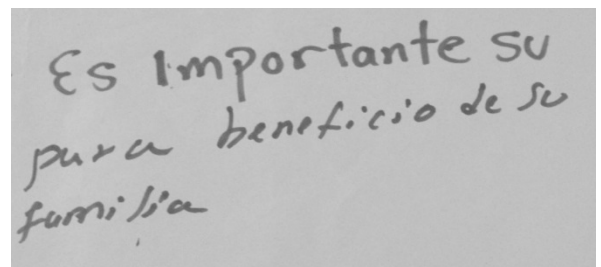 Es Importante su
para beneficio de su
familia